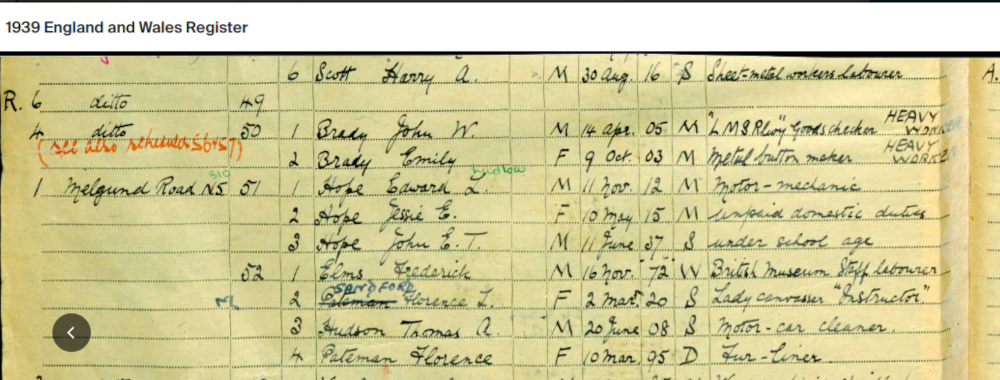 1939 England and Wales Register
6 Scott Harry A. M 30 Aug. 16 S Sheet-metal workers labourer A.
R. 6 ditto 49
4 ditto 50 1 Brady John W. M 14 Apr. 05 M "L M S Rlwy" Goods checker HEAVY WORKER
(see also schedules 56 & 57)
2 Brady Emily F 9 Oct. 03 M Metal button maker HEAVY WORKER
Ludlow
1 Melgund Road N5 51 1 Hope Edward L. M 11 Nov. 12 M Motor-mechanic
2 Hope Jessie E. F 10 May 15 M unpaid domestic duties
3 Hope John E. T. M 11 June 37 S under school age
52 1 Elms Frederick M 16 Nov. 72 W British Museum Staff labourer
SANDFORD
2 Pateman Florence L. F 2 Mar. 20 S Lady canvasser "Instructor"
3 Hudson Thomas A. M 20 June 08 S Motor-car cleaner.
4 Pateman Florence F 10 Mar. 95 D Fur-liner